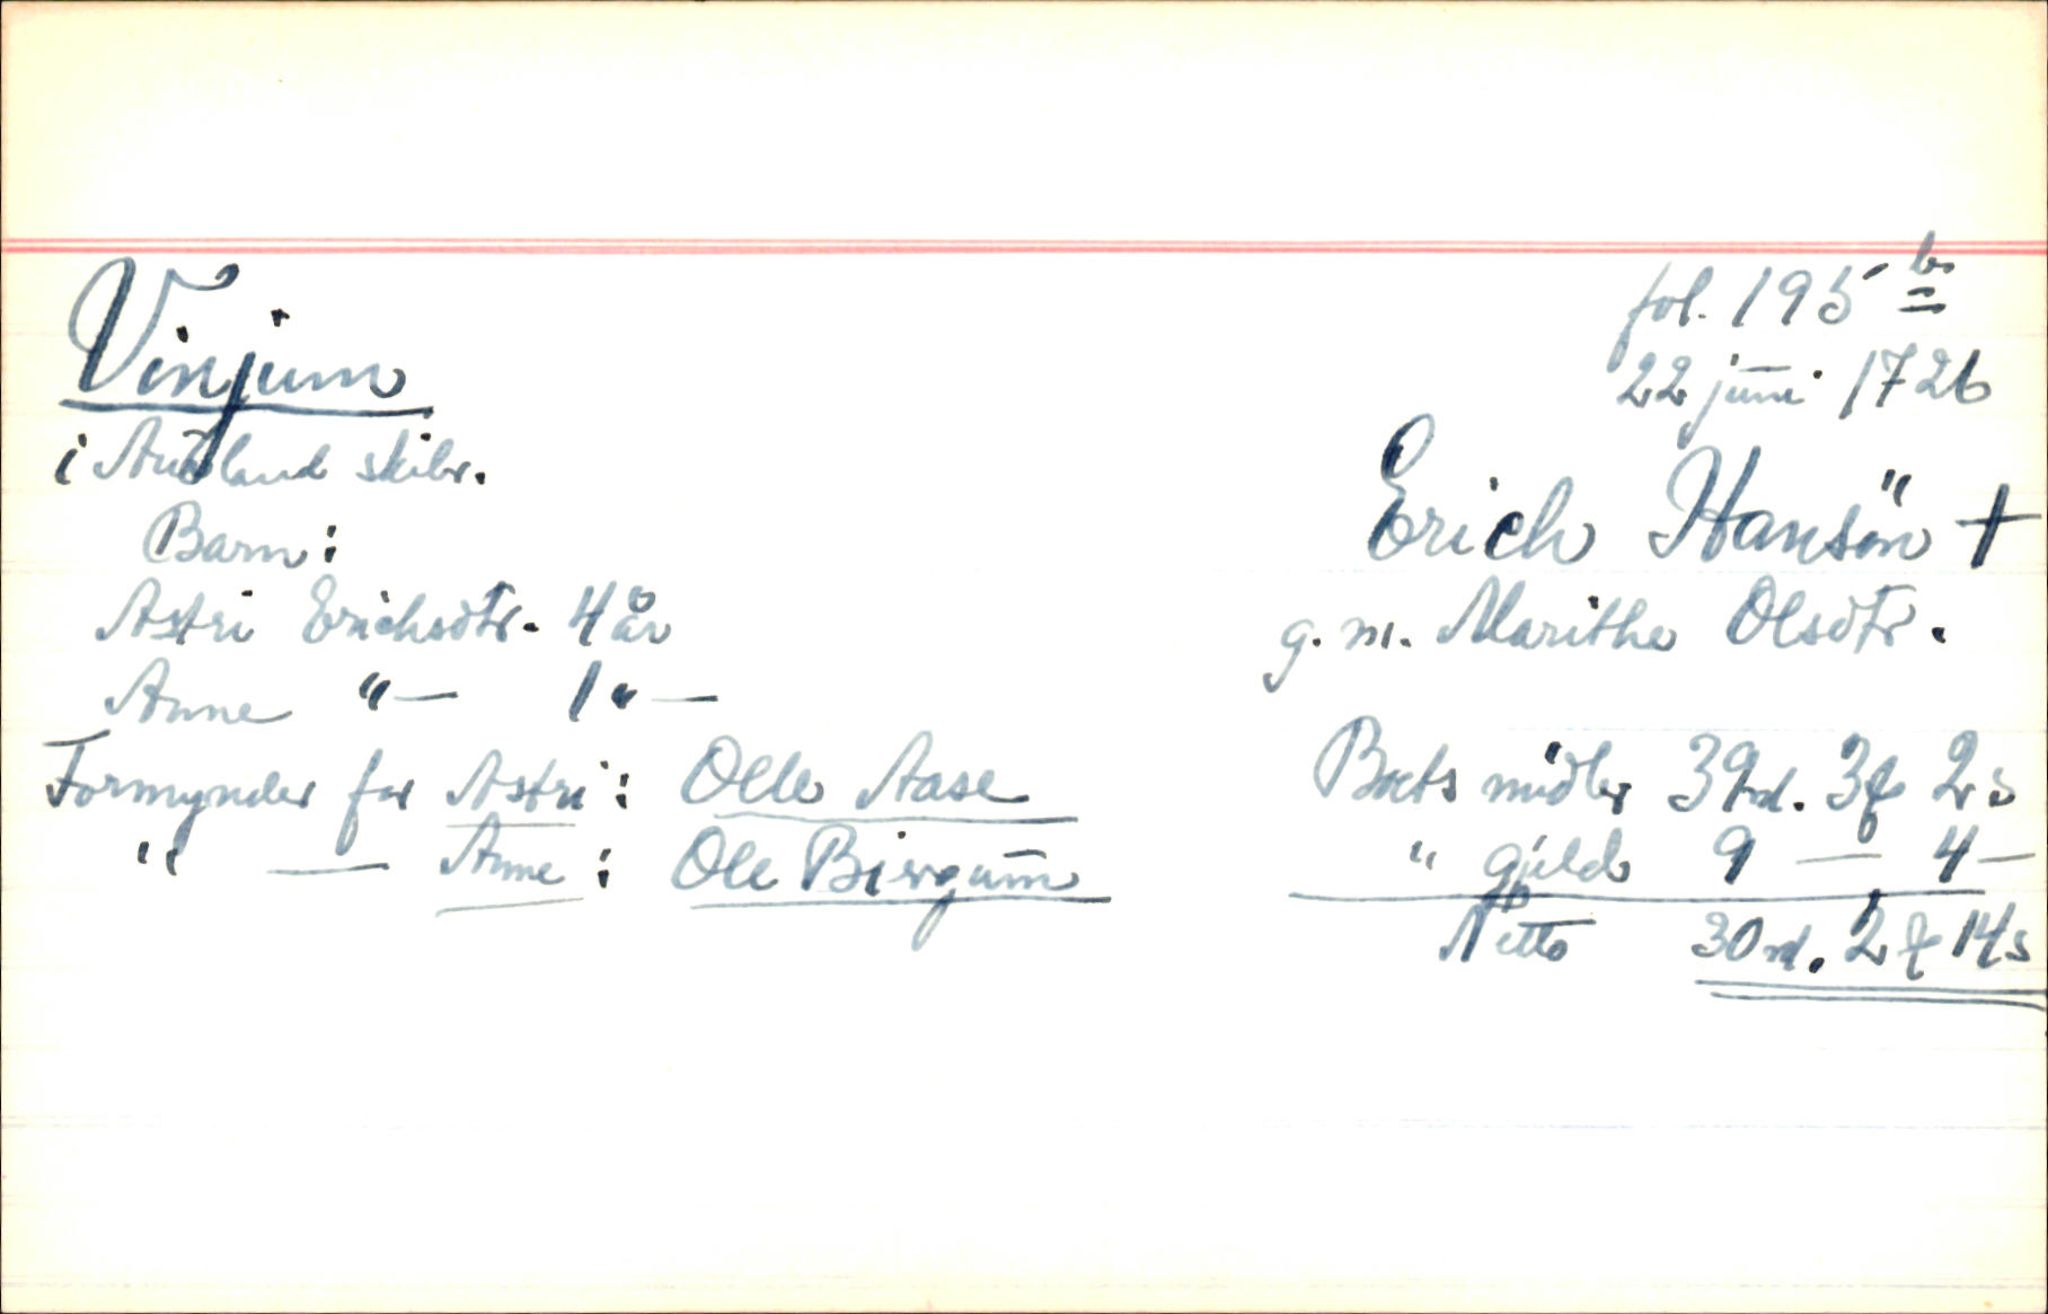 Vinjum
i Aurland skibr.
Barn:
Astri Erichsdtr. 4 år
Anne "— 1 "—
Formynder for Astri: Olle Aase
" — Anne: Ole Birgum
fol. 195 b
22 juni 1726
Erich Hansön +
g. m. Marithe Olsdtr.
Boets midler 39 rd. 3 f 2 s
" gjeld 9 — 4 —
Netto 30 rd. 2 f 14 s